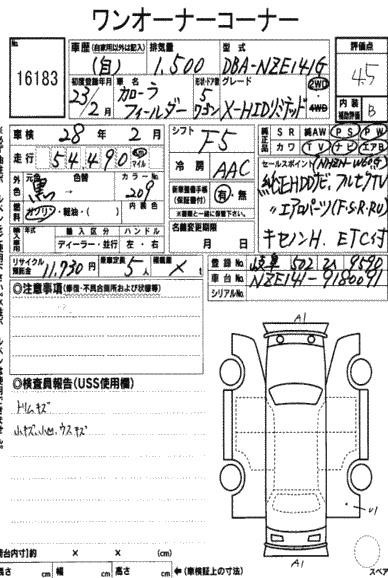 ワンオーナーコーナー
No. 16183
車歴 (自家用以外は記入) 排気量 型式 評価点
(自) 1,500 DBA-NZE141G 4.5
初度登録年月 車名 形状・ドア数 グレード 2WD
23年 2月 カローラ フィールダー 5 ワゴン X-HIDリミテッド 4WD
内装 補助評価 B
車検 28年 2月 シフト F5
純正 SR 純AW PS PW
カワ TV ナビ エアB
走行 54,490 km マイル 冷房 AAC
セールスポイント (NHZN-W60G)
純正HDDナビ、フルセグTV
〃 エアロパーツ(F・S・R・RU)
キセノンH. ETC付
外色 元色 黒 色替 カラーNo. 209
新車整備手帳 (保証書付) 有・無
※書類と一緒に保管下さい。
燃料 ガソリン・軽油・( ) 内装色
名義変更期限 月 日
輸入車用 年式 輸入区分 ハンドル
ディーラー・並行 左・右
リサイクル預託金 11,730円 乗車定員 5人 積載量 × t
登録No. 岐阜 502 ひ 9590
車台No. NZE141-9180091
シリアルNo.
◎注意事項 (修復・不具合箇所および状態等)
◎検査員報告(USS使用欄)
トリムキズ
小キズ、小凹、ウスキズ
A1
U1
A1
荷台内寸】約 × × (cm)
長さ cm 幅 cm 高さ cm ←(車検証上の寸法)
スペア